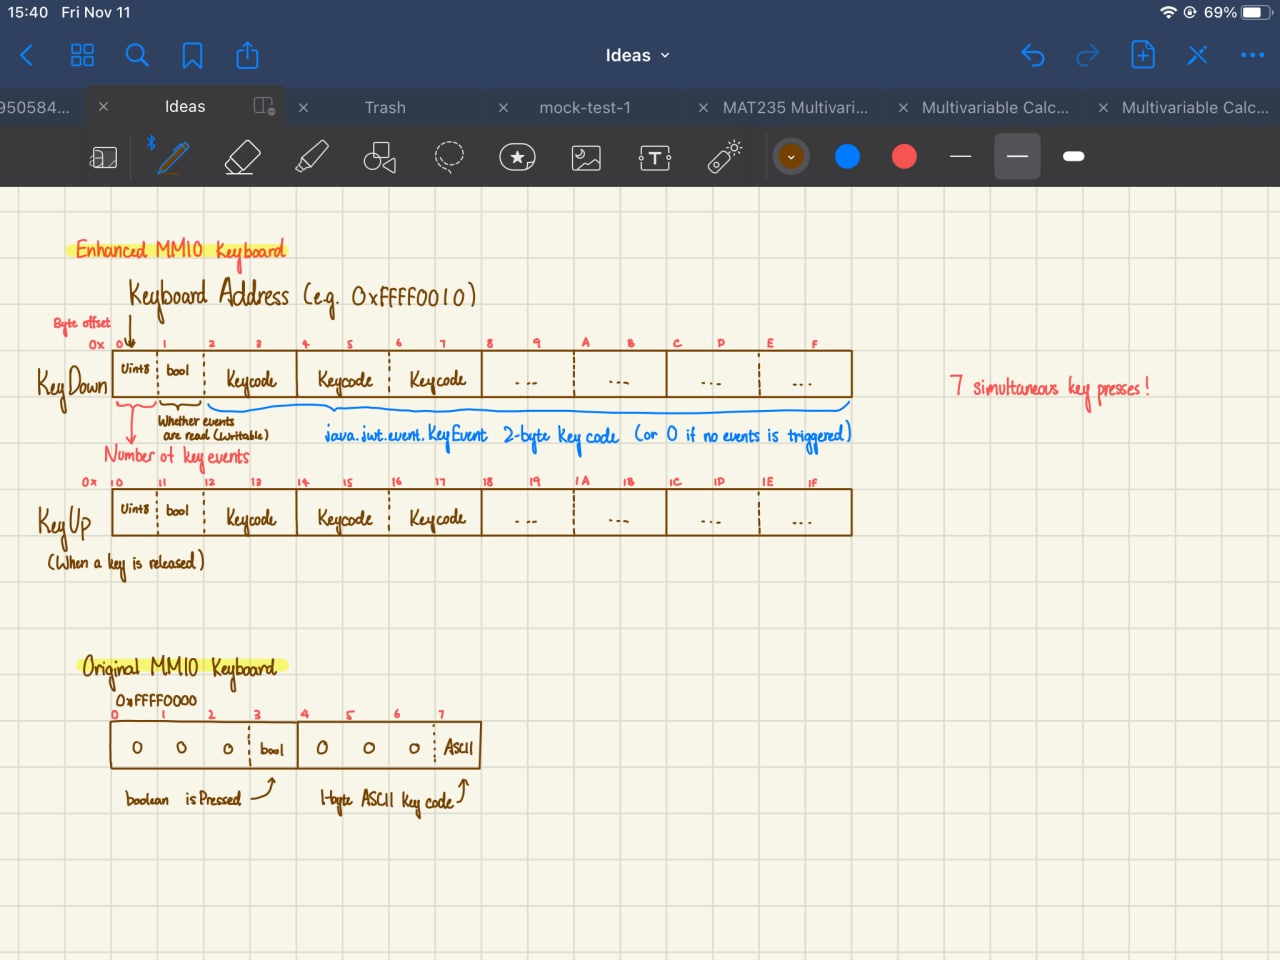 15:40 Fri Nov 11 69%
Ideas
950584... Ideas Trash mock-test-1 MAT235 Multivari... Multivariable Calc... Multivariable Calc...
Enhanced MMIO Keyboard
Keyboard Address (e.g. 0xFFFF0010)
Byte offset
0x 0 1 2 3 4 5 6 7 8 9 A B C D E F
KeyDown Uint8 bool Keycode Keycode Keycode ... ... ... ...
7 simultaneous key presses!
Whether events
are read (Writable)
java.jwt.event.KeyEvent 2-byte Key code (or 0 if no events is triggered)
Number of key events
0x 10 11 12 13 14 15 16 17 18 19 1A 1B 1C 1D 1E 1F
KeyUp Uint8 bool Keycode Keycode Keycode ... ... ... ...
(When a key is released)
Original MMIO Keyboard
0xFFFF0000
0 1 2 3 4 5 6 7
0 0 0 bool 0 0 0 ASCII
boolean isPressed 1-byte ASCII Key code